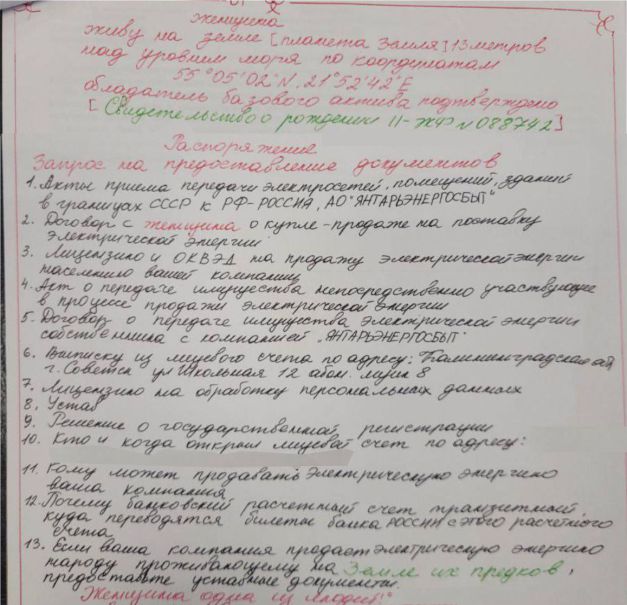 Женщина
живу на земле [планета Земля] 13 метров
над уровнем моря по координатам
55°05'02"N, 21°52'42"E
обладатель базового актива подтверждено
[Свидетельство о рождении II-ЖФ N 088742]
Распоряжение
Запрос на предоставление документов
1. Акты приема передачи электросетей, помещений, зданий
в границах СССР к РФ-РОССИЯ, АО "ЯНТАРЬЭНЕРГОСБЫТ"
2. Договор с женщина о купле-продаже на поставку
электрической энергии
3. Лицензию и ОКВЭД на продажу электрической энергии
населению вашей компании
4. Акт о передаче имущества непосредственно участвующее
в процессе продажи электрической энергии
5. Договор о передаче имущества электрической энергии
собственника с компанией "ЯНТАРЬЭНЕРГОСБЫТ"
6. Выписку из лицевого счета по адресу: Калининградская обл
г. Советск ул Школьная 12 абн. 8
7. Лицензию на обработку персональных данных
8. Устав
9. Решение о государственной регистрации
10. Кто и когда открыл лицевой счет по адресу:
11. Кому может продавать электрическую энергию
ваша компания
12. Почему банковский расчетный счет транзитный,
куда переводятся билеты банка РОССИИ с этого расчетного
счета
13. Если ваша компания продает электрическую энергию
народу проживающему на Земле их предков,
предоставьте уставные документы.
Женщина одна из людей!